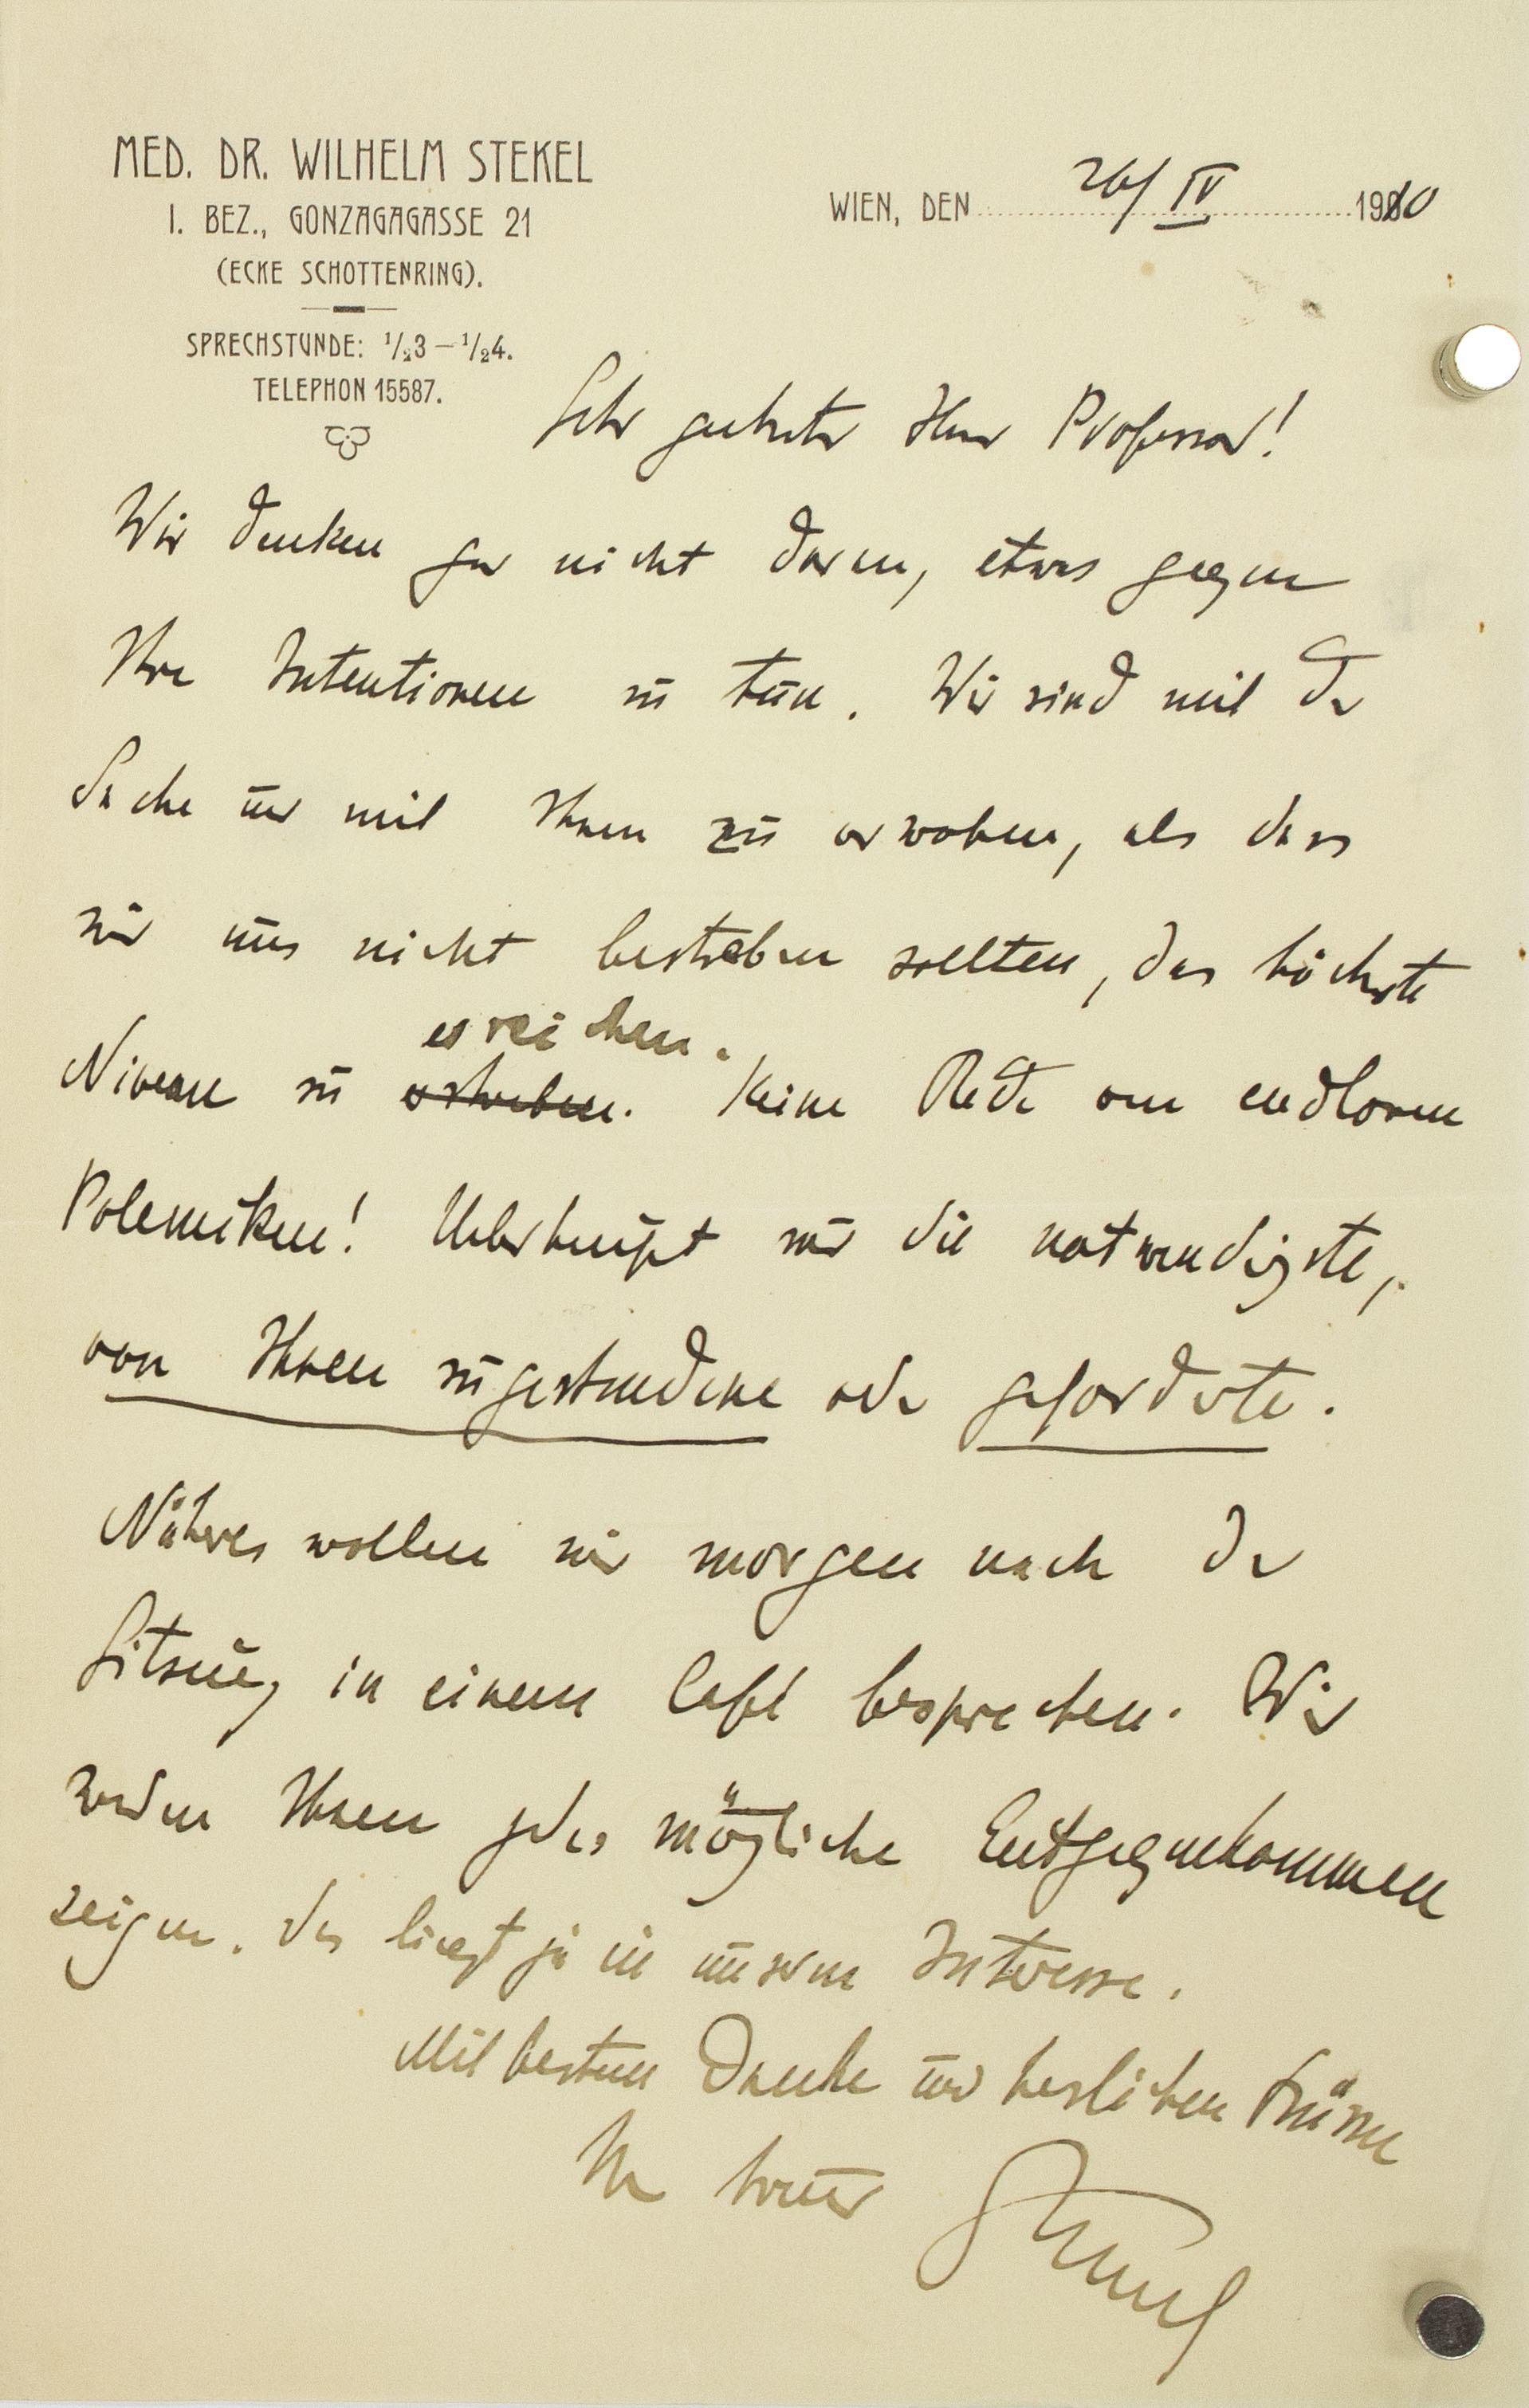 MED. DR. WILHELM STEKEL
I. BEZ., GONZAGAGASSE 21
(ECKE SCHOTTENRING).
SPRECHSTUNDE: 1/23 – 1/24.
TELEPHON 15587.
WIEN, DEN 26/IV 1910
Sehr geehrter Herr Professor!
Wir denken gar nicht daran, etwas gegen
Ihre Intentionen zu tun. Wir sind mit der
Sache und mit Ihnen zu verwoben, als dass
wir uns nicht bestreben sollten, das höchste
erreichen.
Niveau zu erstreben. Keine Rede von endlosen
Polemiken! Ueberhaupt nur die notwendigste,
von Ihnen zugestandene oder geforderte.
Näheres wollen wir morgen nach der
Sitzung in einem Café besprechen. Wir
werden Ihnen jedes mögliche Entgegenkommen
zeigen. Das liegt ja in unserem Interesse.
Mit bestem Danke und herzlichen Grüssen
Ihr treuer Stekel